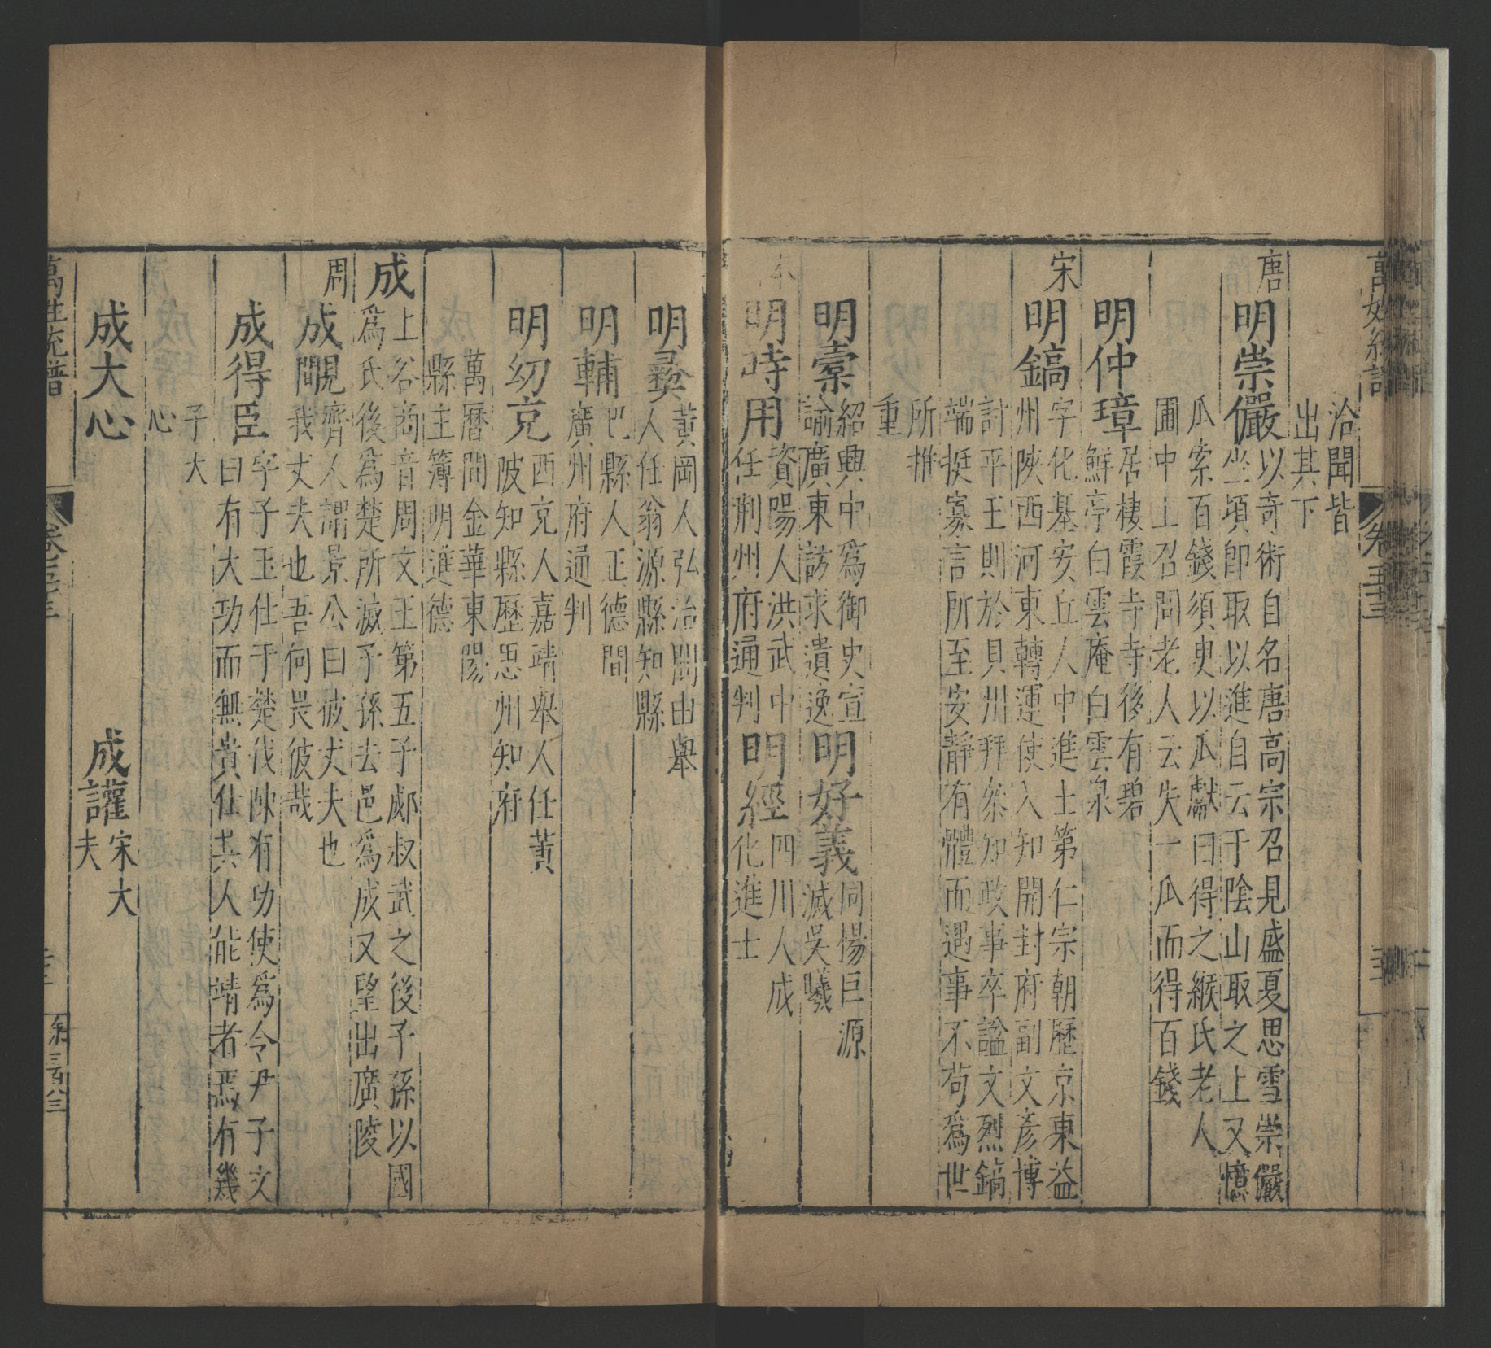 洽聞皆
出其下
唐
明崇儼
以奇術自名唐高宗召見盛夏思雪崇儼
坐頃卽取以進自云于陰山取之上又憶
瓜索百錢須臾以瓜獻曰得之緱氏老人
圃中上召問老人云失一瓜而得百錢
明仲璋
居棲霞寺寺後有碧
鮮亭白雲庵白雲泉
宋
明鎬
字化基安丘人中進士第仁宗朝歷京東益
州陝西河東轉運使入知開封府副文彥博
討平王則於貝州拜參知政事卒諡文烈鎬
端挺寡言所至安靜有體而遇事不苟爲世
所推
重
明橐
紹興中爲御史宣
諭廣東訪求遺逸
明好義
同楊巨源
滅吳曦
明時用
資陽人洪武中
任荊州府通判
明經
四川人成
化進士
明彝
黃岡人弘治間由舉
人任翁源縣知縣
明輔
巴縣人正德間
廣州府通判
明初亮
西充人嘉靖舉人任黃
陂知縣歷思州知府
萬曆間金華東陽
縣主簿明進德
成
上谷商音周文王第五子郕叔武之後子孫以國
爲氏後爲楚所滅子孫去邑爲成又望出廣陵
周
成覵
齊人謂景公曰彼丈夫也
我丈夫也吾何畏彼哉
成得臣
字子玉仕于楚伐陳有功使爲令尹子文
曰有大功而無貴仕其人能靖者焉有幾
子大
心
成大心
成讙
宋大
夫
萬姓統譜